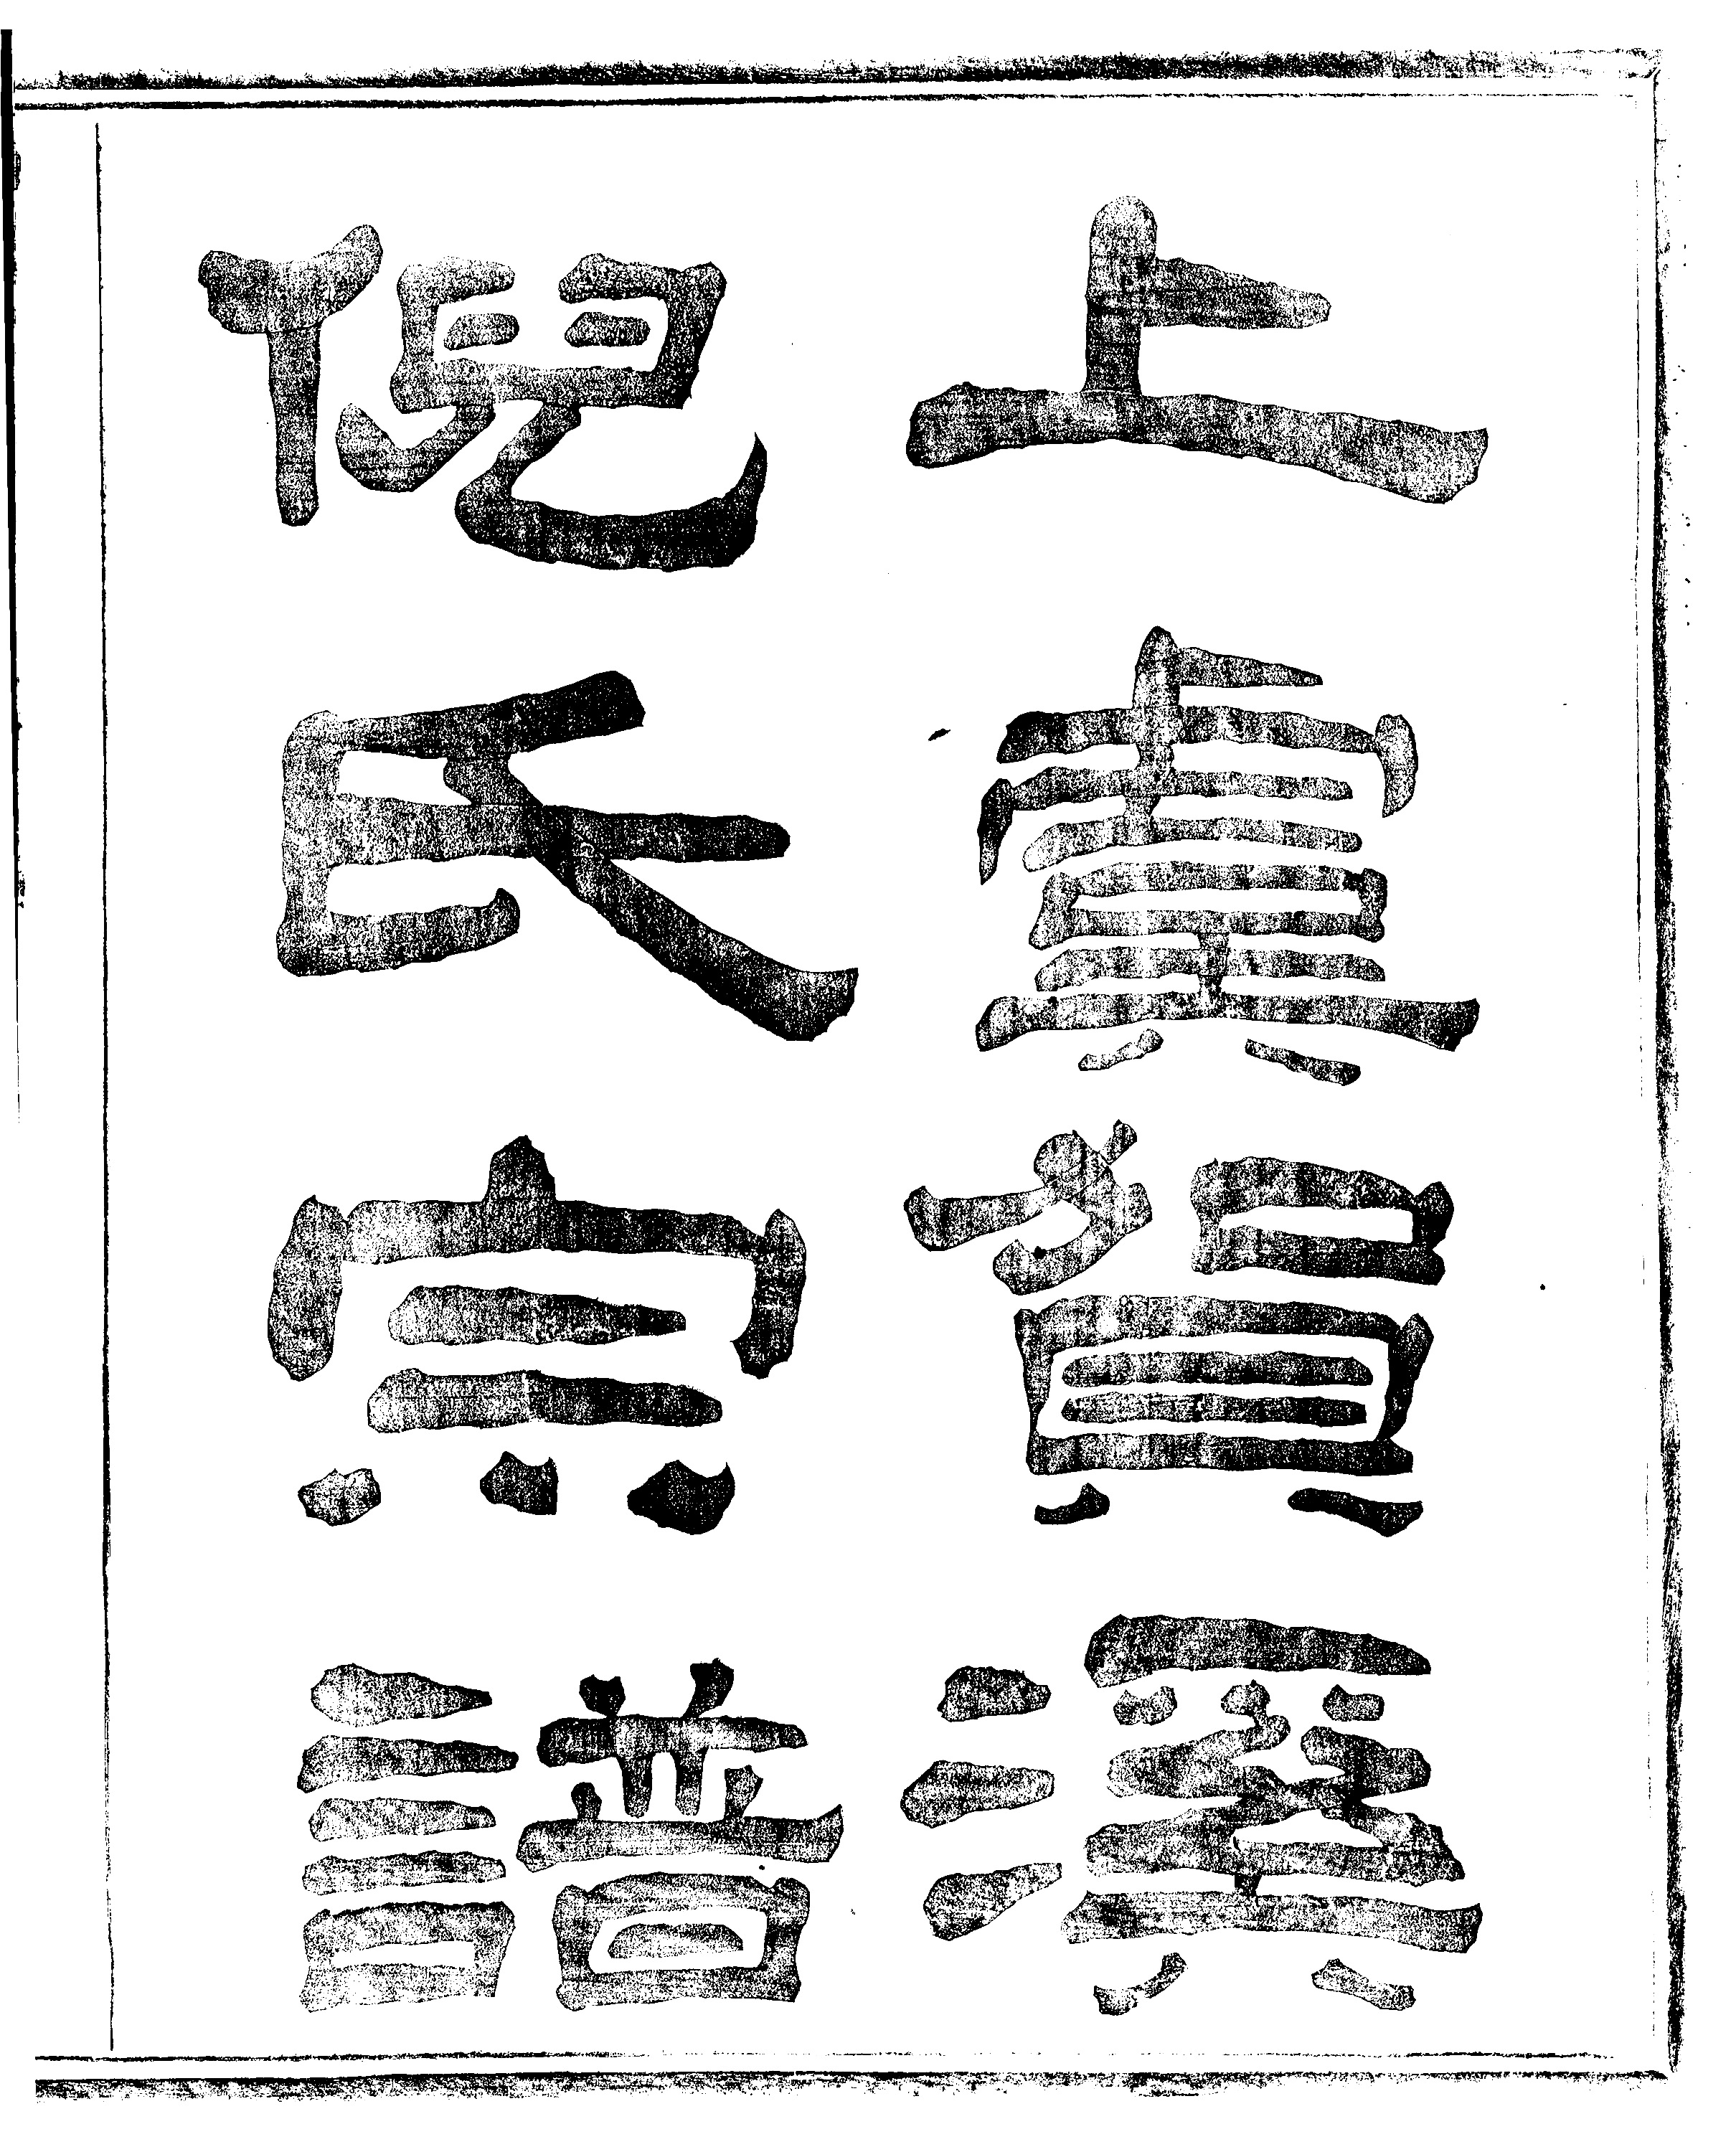 上虞賀溪
倪氏宗譜